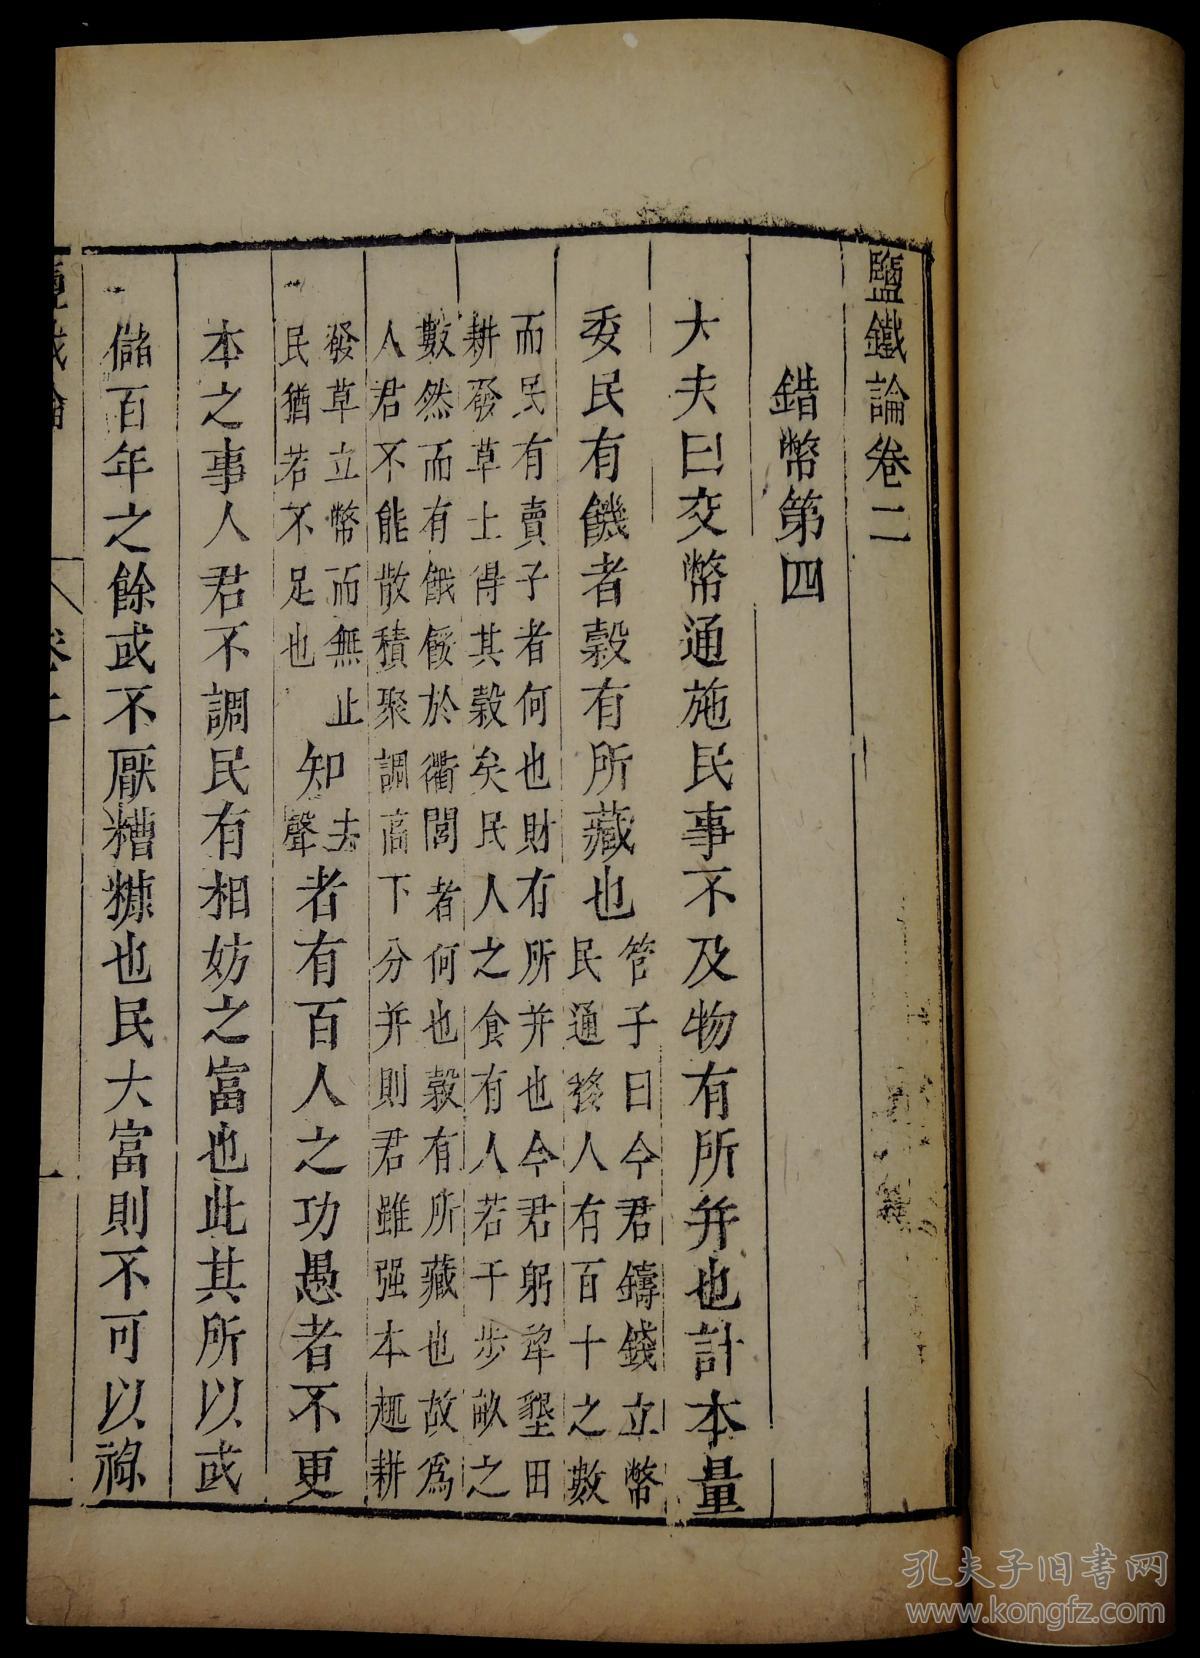 鹽鐵論卷二
錯幣第四
大夫曰交幣通施民事不及物有所并也計本量
委民有饑者穀有所藏也
管子曰今君鑄錢立幣
民通移人有百十之數
而民有賣子者何也財有所并也今君躬犂墾田
耕發草土得其穀矣民人之食有人若干步畝之
數然而有餓餒於衢閭者何也穀有所藏也故爲
人君不能散積聚調高下分并則君雖强本趣耕
發草立幣而無止
民猶若不足也
知
去
聲
者有百人之功愚者不更
本之事人君不調民有相妨之富也此其所以或
儲百年之餘或不厭糟糠也民大富則不可以祿
卷二
一
孔夫子旧書网
www.kongfz.com